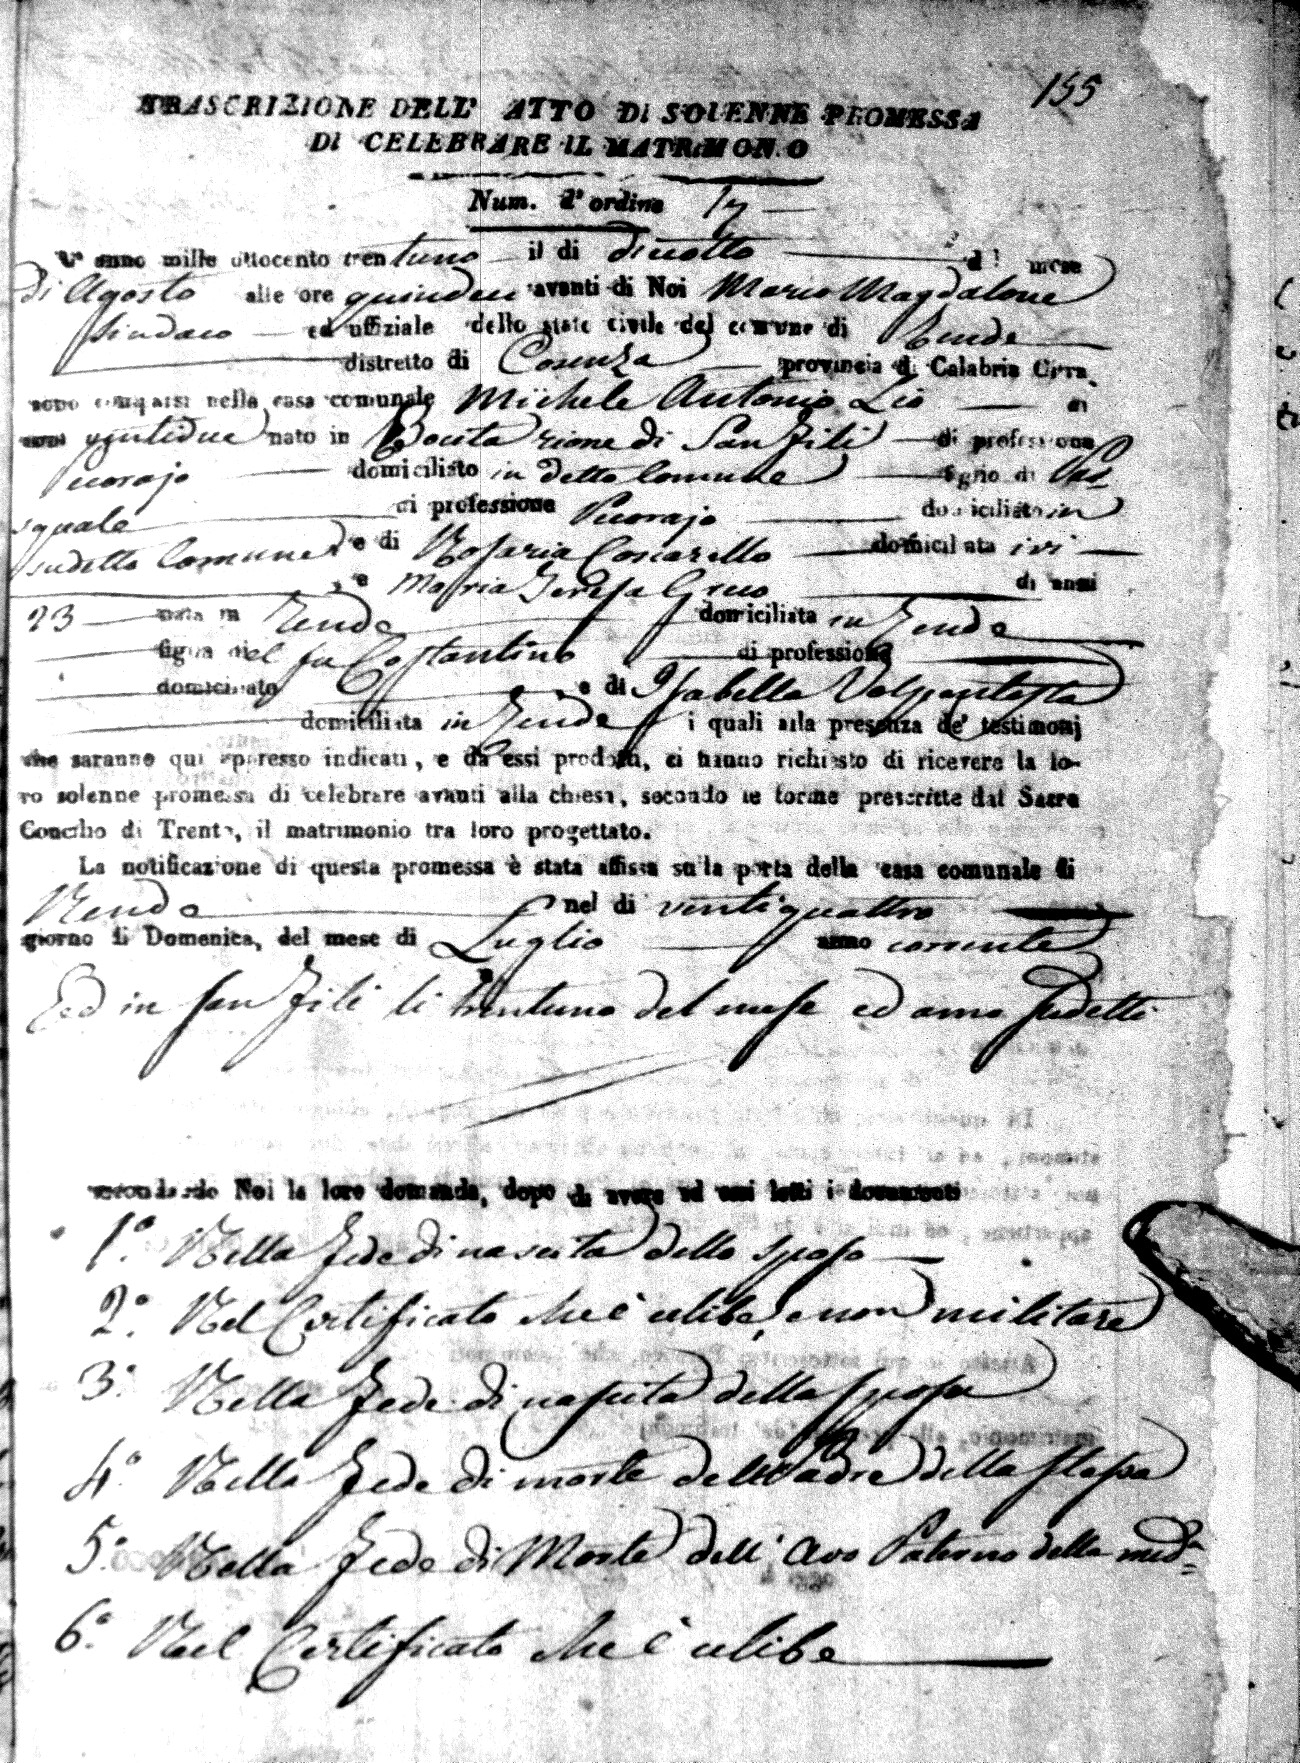 155
TRASCRIZIONE DELL' ATTO DI SOLENNE PROMESSA
DI CELEBRARE IL MATRIMONIO
Num. d'ordine 17
L' anno mille ottocento trentuno il di diciotto del mese
di Agosto alle ore quindeci avanti di Noi Marco Magdalone
Sindaco ed uffiziale dello stato civile del comune di Rende
distretto di Cosenza provincia di Calabria Citra,
sono comparsi nella casa comunale Michele Antonio Lio di
anni ventidue nato in Bucita rione di San Fili di professione
Pecorajo domiciliato in detto Comune figlio di Pas=
squale di professione Pecorajo domiciliato in
sudetto Comune e di Rosaria Coscarello domiciliata ivi
, e Maria Teresa Greco di anni
23 nata in Rende domiciliata in Rende
figlia del fu Costantino di professione
domiciliato e di Isabella Volpentesta
domiciliata in Rende i quali alla presenza de' testimonj
che saranno qui appresso indicati, e da essi prodotti, ci hanno richiesto di ricevere la lo-
ro solenne promessa di celebrare avanti alla chiesa, secondo le forme prescritte dal Sacro
Concilio di Trento, il matrimonio tra loro progettato.
La notificazione di questa promessa è stata affissa sulla porta della casa comunale di
Rende nel di ventiquattro
giorno di Domenica, del mese di Luglio anno corrente
Ed in San Fili li trentuno del mese ed anno sudetti
secondando Noi la loro domanda, dopo di avere ad essi letti i documenti
1.° Nella Fede di nascita dello sposo
2.° Nel Certificato che è celibe, e non militare
3.° Nella Fede di nascita della sposa
4.° Nella Fede di morte del Padre della stessa
5.° Nella Fede di Morte dell' Avo Paterno della med.a
6.° Nel Certificato che è celibe